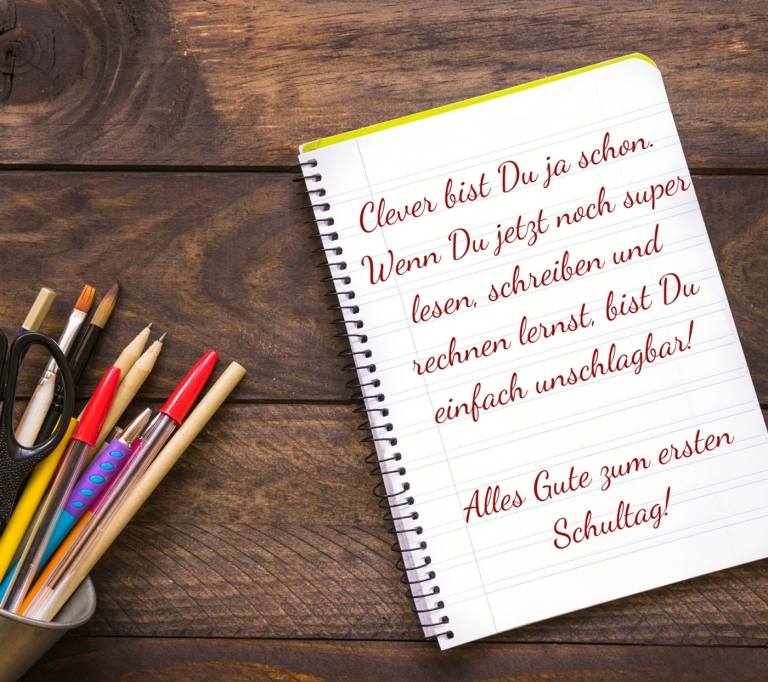 Clever bist Du ja schon.
Wenn Du jetzt noch super
lesen, schreiben und
rechnen lernst, bist Du
einfach unschlagbar!
Alles Gute zum ersten
Schultag!